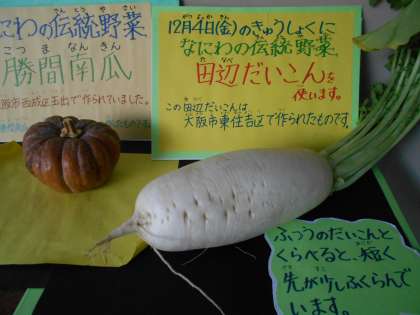 なにわの伝統野菜
こつまなんきん
勝間南瓜
大阪市西成区玉出で作られていました。
12月4日(金)のきゅうしょくに
なにわの伝統野菜
田辺だいこんを
使います。
この田辺だいこんは
大阪市東住吉区で作られたものです。
ふつうのだいこんと
くらべると、短く
先が少しふくらんで
います。